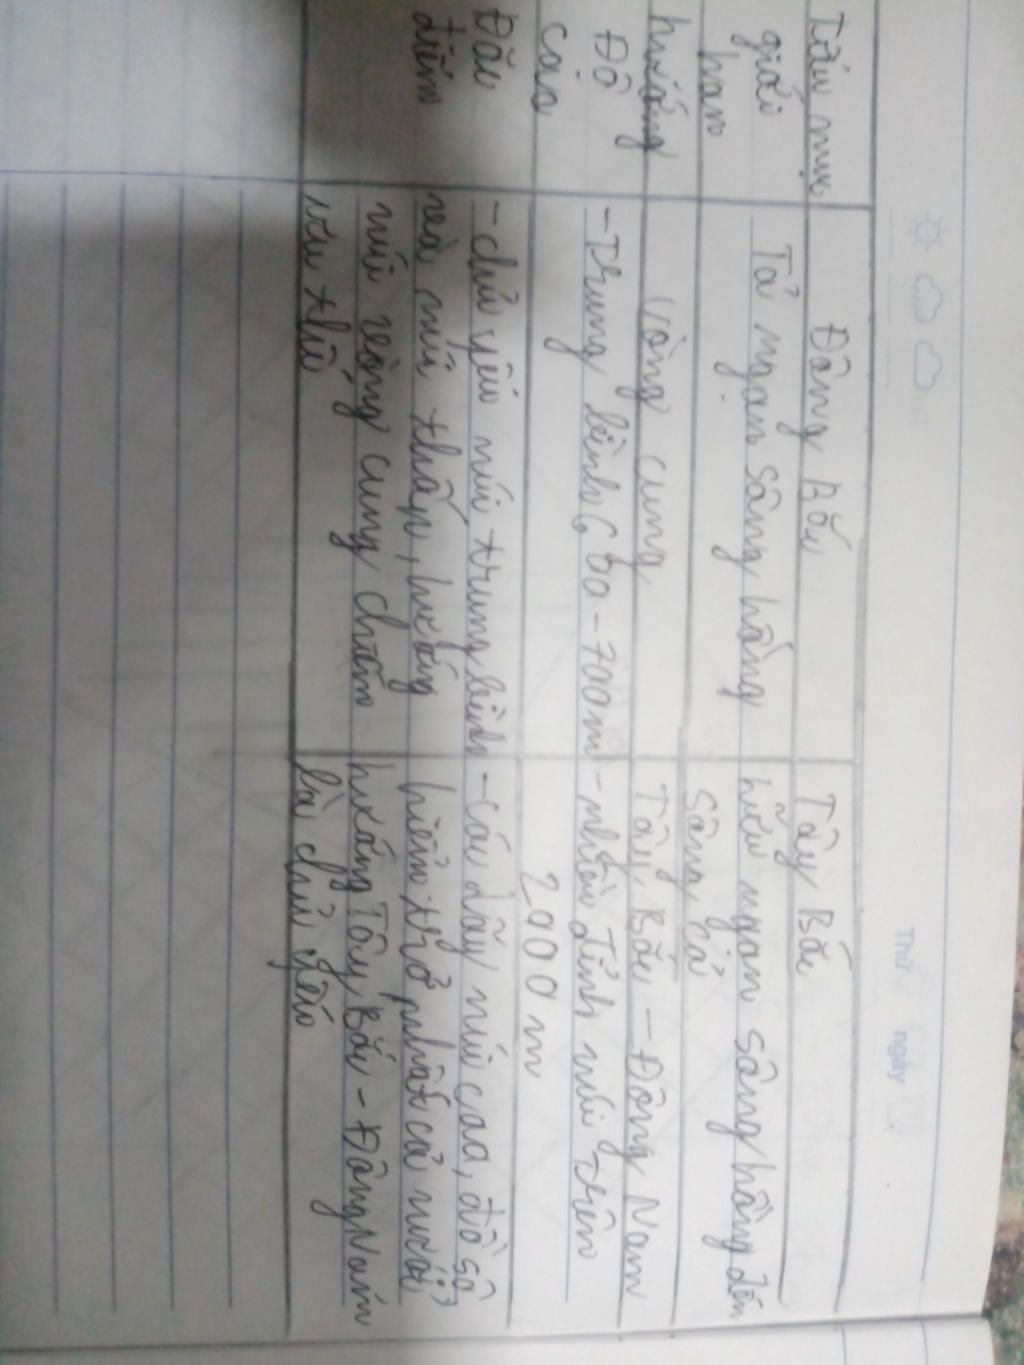 Thứ ngày
Tiểu mục Đông Bắc Tây Bắc
giới Tả ngạn sông hồng hữu ngạn sông hồng đến
hạn sông, cả
hướng Vòng cung Tây, Bắc - Đông Nam
Độ - Trung bình 600 - 700m - nhiều đỉnh núi trên
cao 2000 m
Đặc - chủ yếu núi trung bình - các dãy núi cao, đồ sộ
điểm và núi thấp, hướng hiểm trở nhất cả nước,
núi vòng cung chiếm hướng Tây Bắc - Đông Nam
ưu thế là chủ yếu